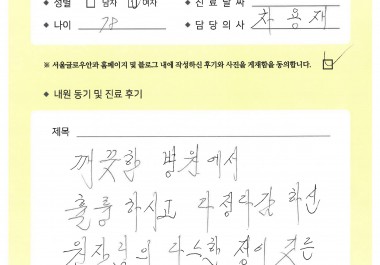 ◆ 성별 남자 여자 ◆ 진료날짜
◆ 나이 78 ◆ 담당의사 차용재
※ 서울글로우안과 홈페이지 및 블로그 내에 작성하신 후기와 사진을 게재함을 동의합니다.
◆ 내원 동기 및 진료 후기
제목
깨끗한 병원에서
훌륭하시고 다정다감 하신
원장님의 다스한 정이 흐르